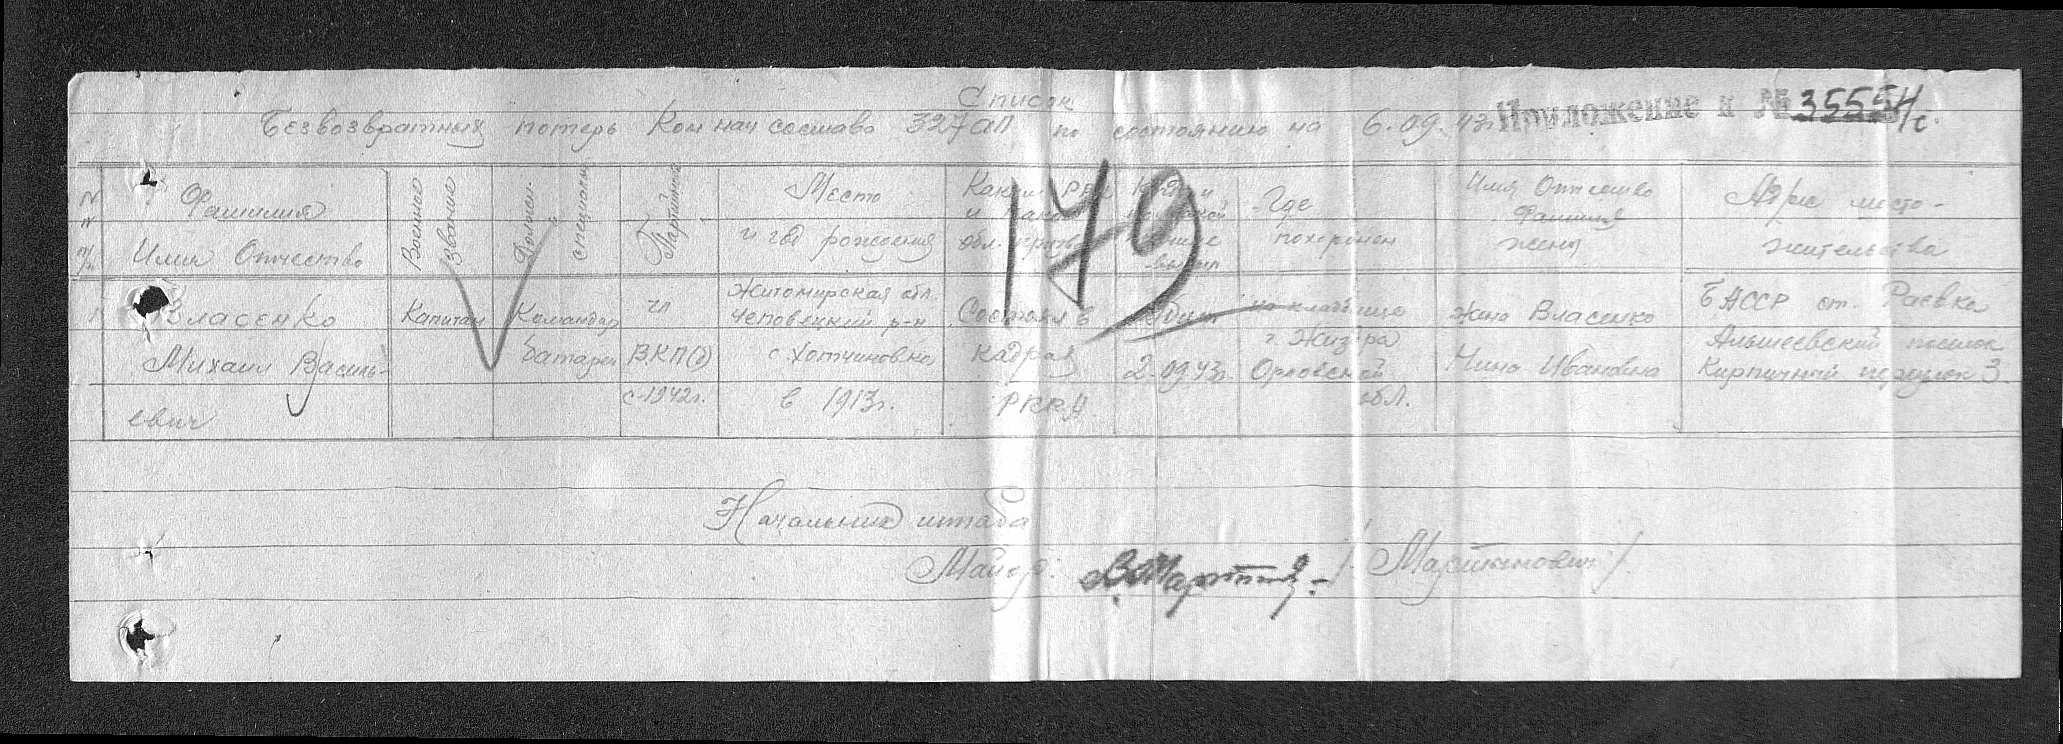 Список
Безвозвратных потерь Ком нач состава 327 ап по состоянию на 6.09.43г.
Приложение к № 35554/с.
179
N N п/п
Фамилия
Имя Отчество
Военное звание
Должн. специальн.
Партийность
Место
и год рождения
Каким РВК
и какой
обл. призв.
Где
похоронен
Имя Отчество
Фамилия
жены
Адрес место-
жительства
1
Власенко
Михаил Василь-
евич
Капитан
Командир
батареи
чл
ВКП(б)
с 1942г.
Житомирская обл.
Чеповецкий р-н
с Хотчиновка
в 1913г.
Состоял в
кадрах
РККА
Убит
2.09.43г.
на кладбище
г. Жиздра
Орловской
обл.
жена Власенко
Нина Ивановна
БАССР ст. Раевка
Альшеевский поселок
Кирпичный переулок 3.
Начальник штаба
Майор: / Мартынович /